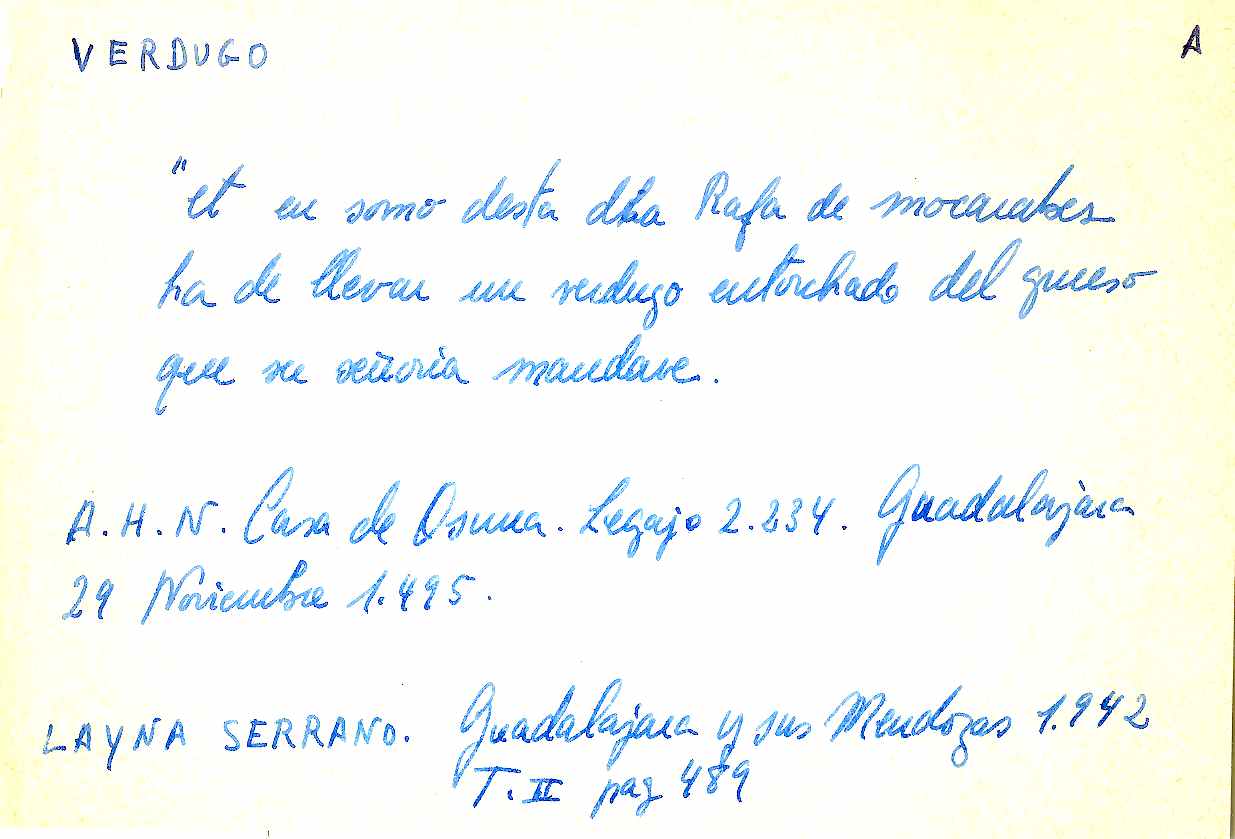 VERDUGO
A
"et en somo desta dha Rafa de mocarabes
ha de llevar un verdugo entorchado del grueso
que su señoria mandare.
A.H.N. Casa de Osuna. Legajo 2.234. Guadalajara
29 Noviembre 1.495.
LAYNA SERRANO. Guadalajara y sus Mendozas 1.942
T. II pag 489